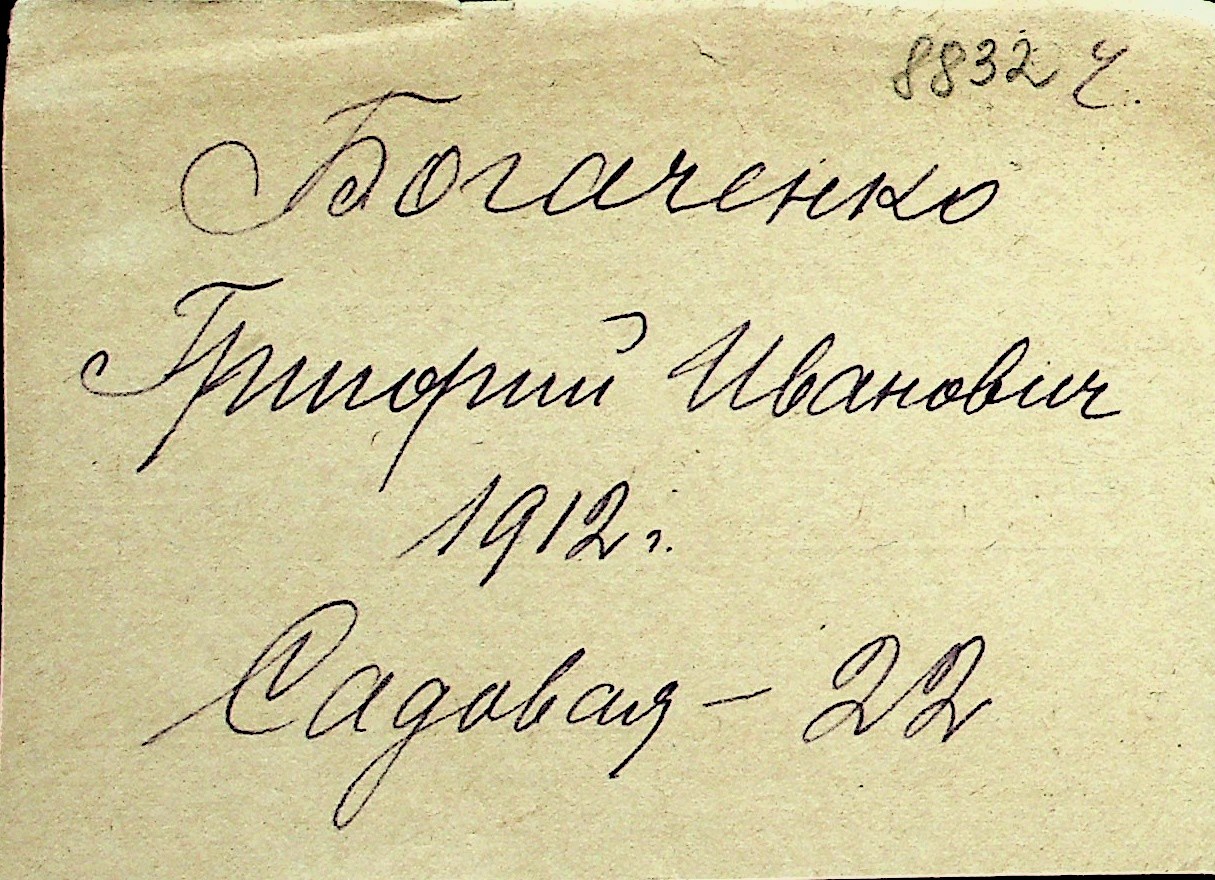 8832 ч.
Богаченко
Григорий Иванович
1912 г.
Садовая – 22